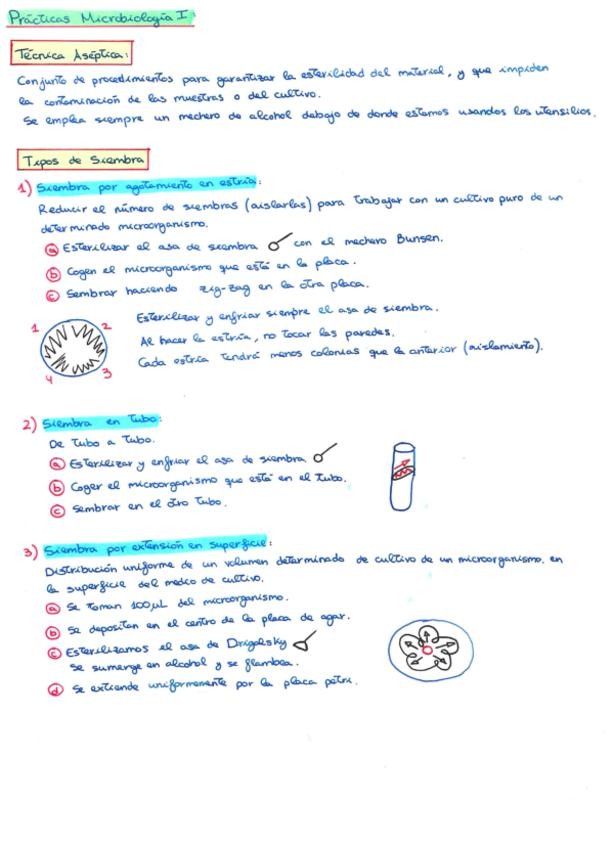 Prácticas Microbiología I
Técnica Aséptica:
Conjunto de procedimientos para garantizar la esterilidad del material, y que impiden
la contaminación de las muestras o del cultivo.
Se emplea siempre un mechero de alcohol debajo de donde estamos usandos los utensilios.
Tipos de Siembra
1) Siembra por agotamiento en estría:
Reducir el número de siembras (aislarlas) para trabajar con un cultivo puro de un
determinado microorganismo.
a Esterilizar el asa de siembra con el mechero Bunsen.
b Cogen el microorganismo que está en la placa.
c Sembrar haciendo zig-zag en la otra placa.
Esterilizar y enfriar siempre el asa de siembra.
1 2
Al hacer la estría, no tocar las paredes.
Cada estría tendrá menos colonias que la anterior (aislamiento).
4 3
2) Siembra en tubo:
De tubo a tubo.
a Esterilizar y enfriar el asa de siembra
b Coger el microorganismo que está en el tubo.
c Sembrar en el otro tubo.
3) Siembra por extensión en superficie:
Distribución uniforme de un volumen determinado de cultivo de un microorganismo, en
la superficie del medio de cultivo.
a Se toman 100µL del microorganismo.
b Se depositan en el centro de la placa de agar.
c Esterilizamos el asa de Drigalsky
Se sumerge en alcohol y se flambea.
d Se extiende uniformemente por la placa petri.